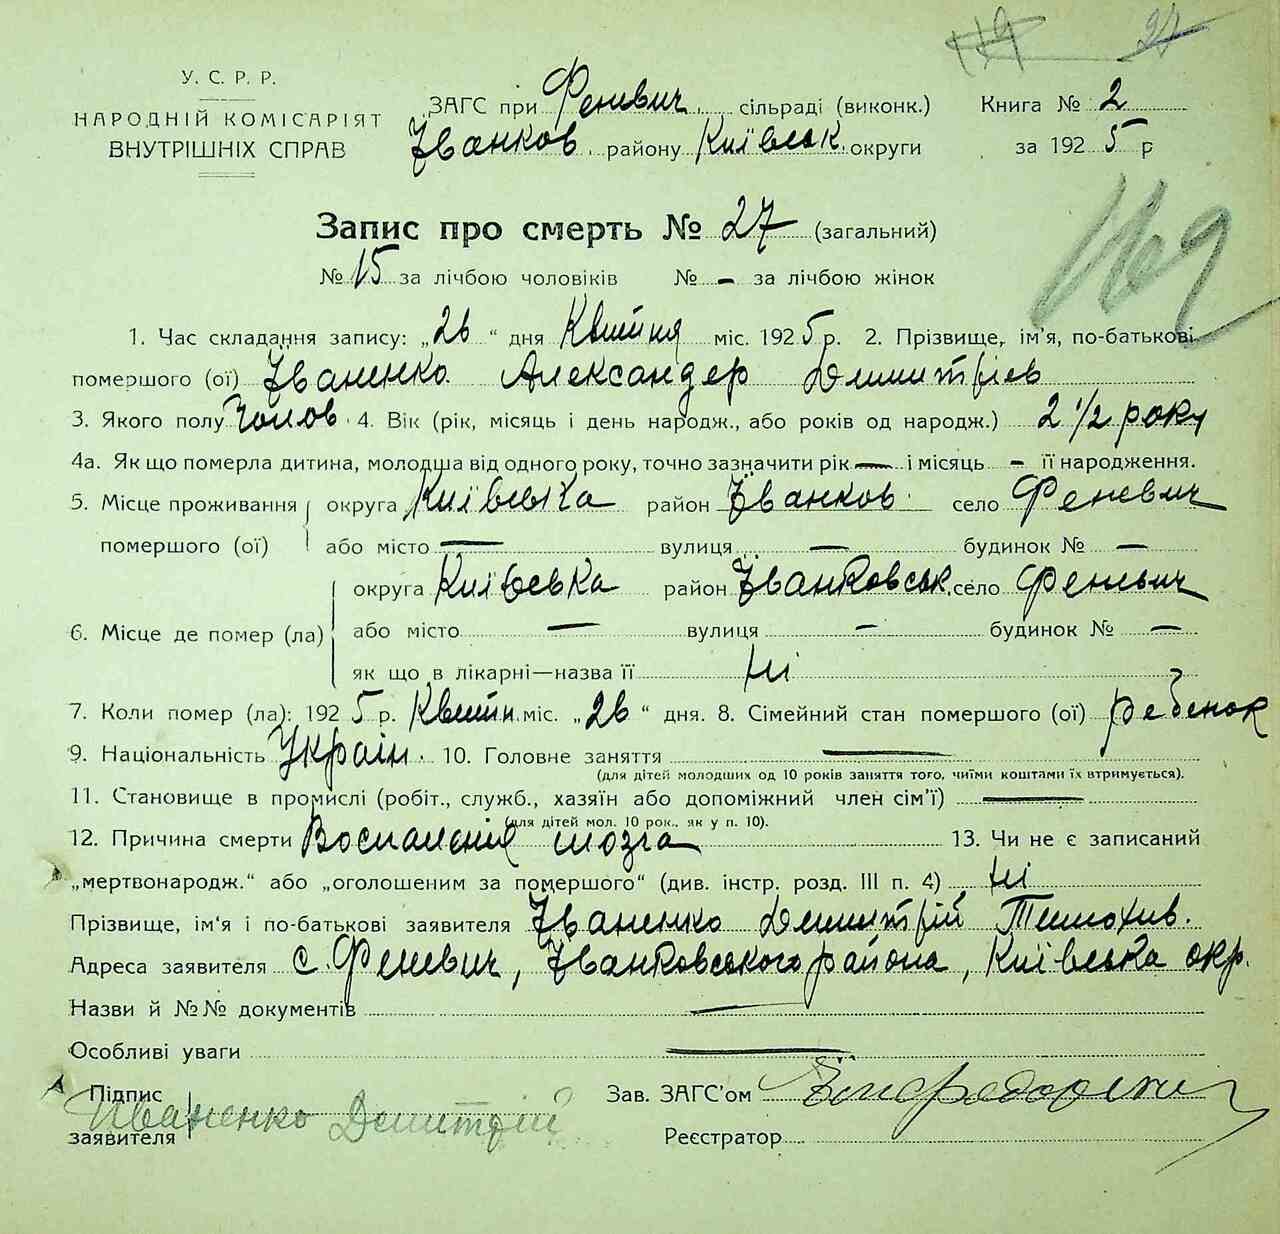 27
У. С. Р. Р.
НАРОДНІЙ КОМІСАРІЯТ
ВНУТРІШНІХ СПРАВ
ЗАГС при Феневич. сільраді (виконк.)
Іванков. району Київськ. округи
Книга № 2
за 1925 р
Запис про смерть № 27 (загальний)
№ 15 за лічбою чоловіків № – за лічбою жінок
169
1. Час складання запису: „26“ дня Квітня міс. 1925 р. 2. Прізвище, ім'я, по-батькові
помершого (ої) Іваненко Александер Димитріев
3. Якого полу Чолов. 4. Вік (рік, місяць і день народж., або років од народж.) 2 1/2 року
4а. Як що померла дитина, молодша від одного року, точно зазначити рік — і місяць – її народження.
5. Місце проживання округа Київська район Іванков. село Феневич
помершого (ої) або місто — вулиця — будинок № —
округа Київська район Іванковськ. село Феневич
6. Місце де помер (ла) або місто — вулиця — будинок № —
як що в лікарні—назва її ні
7. Коли помер (ла): 1925 р. Квітн. міс. „26“ дня. 8. Сімейний стан помершого (ої) ребенок
9. Національність Україн. 10. Головне заняття —
(для дітей молодших од 10 років заняття того, чиїми коштами їх втримується).
11. Становище в промислі (робіт., служб., хазяїн або допоміжний член сім'ї) —
(для дітей мол. 10 рок., як у п. 10).
12. Причина смерти Воспаление мозга 13. Чи не є записаний
„мертвонародж.“ або „оголошеним за помершого“ (див. інстр. розд. III п. 4) ні
Прізвище, ім'я і по-батькові заявителя Іваненко Димитрій Тимохив.
Адреса заявителя с. Феневич, Іванковського района, Київська окр.
Назви й №№ документів —
Особливі уваги —
Підпис
заявителя Иваненко Демитрій
Зав. ЗАГС'ом
Реєстратор